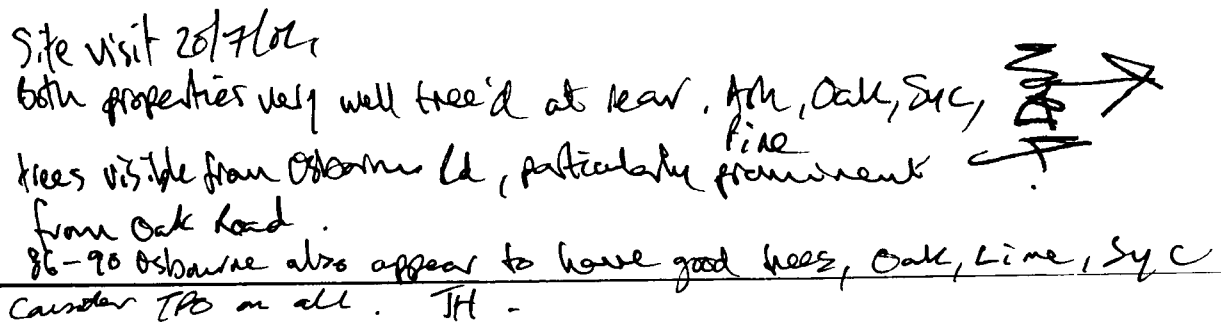 Site visit 20/7/04
Both properties very well tree'd at rear. Ash, Oak, Syc,
Pine
trees visible from Osborne Rd, particularly prominent
from Oak Road.
86-90 Osbourne also appear to have good trees, Oak, Lime, Syc
Consider TPO on all. JH -